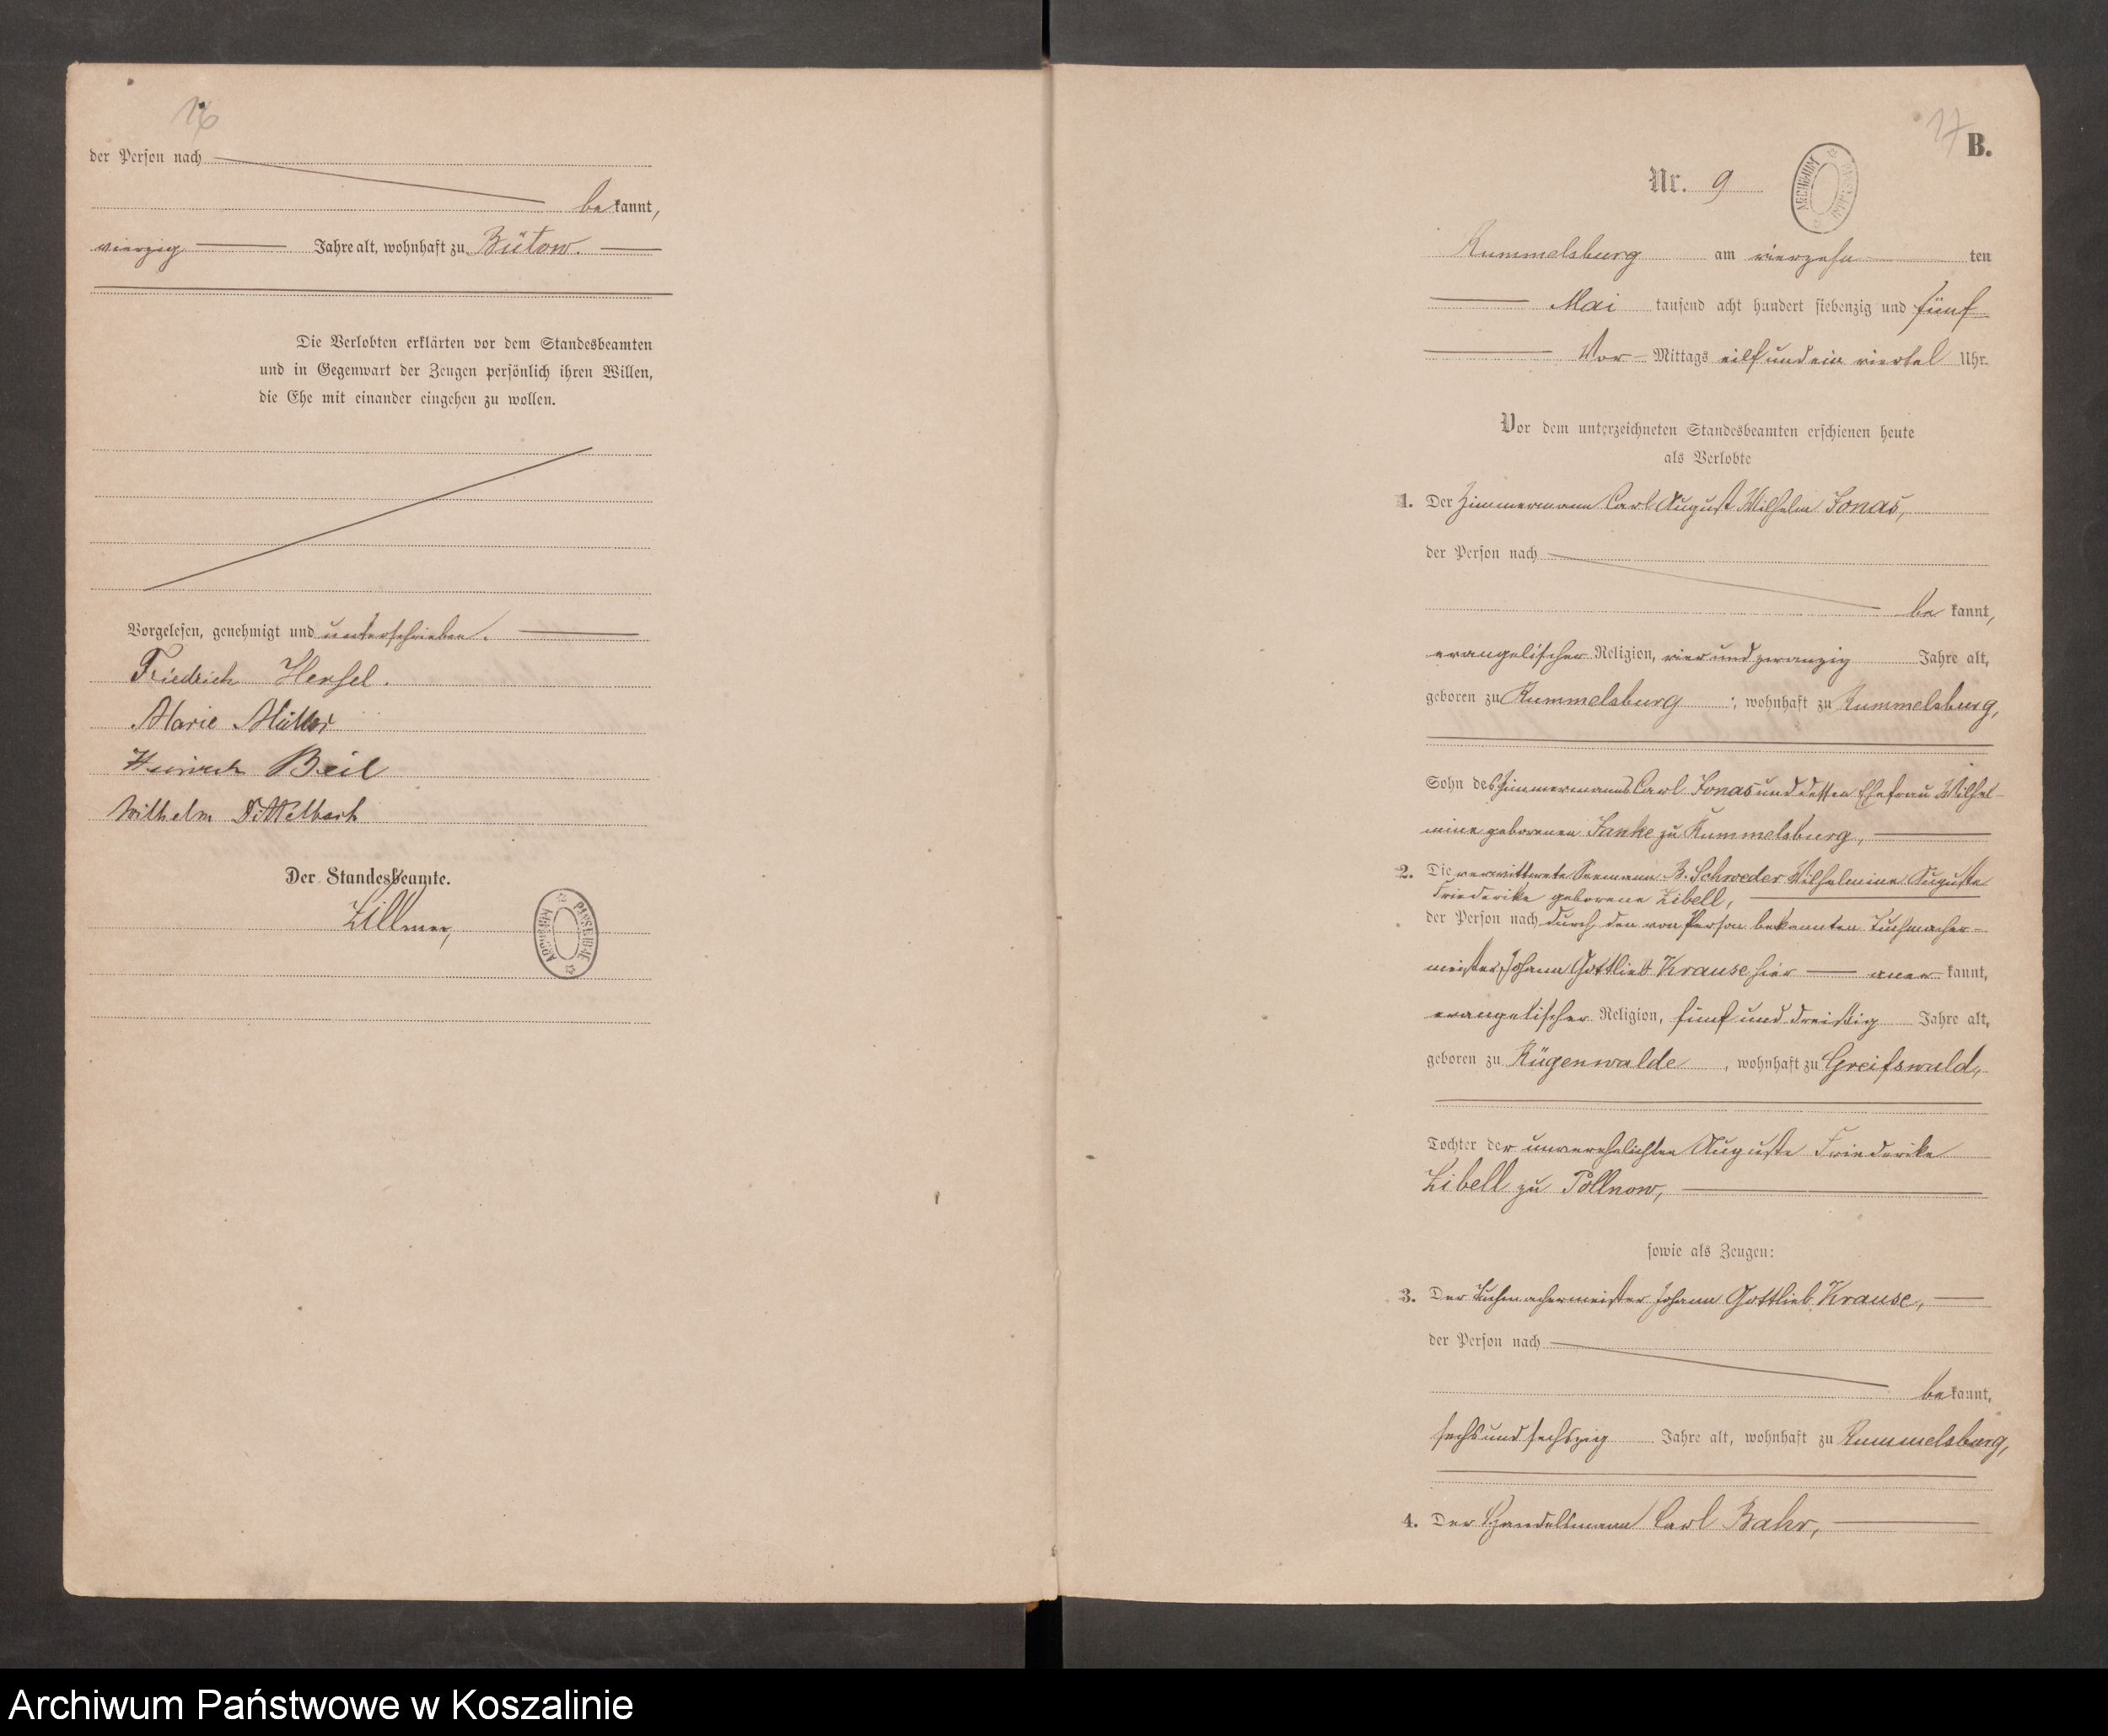 16
der Person nach
bekannt,
vierzig Jahre alt, wohnhaft zu Bütow.
Die Verlobten erklärten vor dem Standesbeamten
und in Gegenwart der Zeugen persönlich ihren Willen,
die Ehe mit einander eingehen zu wollen.
Vorgelesen, genehmigt und unterschrieben.
Friedrich Hensel.
Marie Müller
Heinrich Beil
Wilhelm Dittelbach
Der Standesbeamte.
Zillmer,
ARCHIWUM PAŃSTWOWE
17
B.
Nr. 9
ARCHIWUM PAŃSTWOWE
Rummelsburg am vierzehn ten
Mai tausend acht hundert siebenzig und fünf
Vor-Mittags eilf und ein viertel Uhr.
Vor dem unterzeichneten Standesbeamten erschienen heute
als Verlobte
1. Der Zimmermann Carl August Wilhelm Jonas,
der Person nach
be kannt,
evangelischer Religion, vier und zwanzig Jahre alt,
geboren zu Rummelsburg, wohnhaft zu Rummelsburg,
Sohn des Zimmermanns Carl Jonas und dessen Ehefrau Wilhel-
mine geborenen Janke zu Rummelsburg,
2. Die verwittwete Seemann B. Schroeder Wilhelmine Auguste
Friederike geborene Zibell,
der Person nach durch den von Person bekannten Tuchmacher-
meister Johann Gottlieb Krause hier aner kannt,
evangelischer Religion, fünf und dreißig Jahre alt,
geboren zu Rügenwalde, wohnhaft zu Greifswald,
Tochter der unverehelichten Auguste Friederike
Zibell zu Pollnow,
sowie als Zeugen:
3. Der Tuchmachermeister Johann Gottlieb Krause,
der Person nach
bekannt,
sechs und sechszig Jahre alt, wohnhaft zu Rummelsburg,
4. Der Handelsmann Carl Bahr,
Archiwum Państwowe w Koszalinie